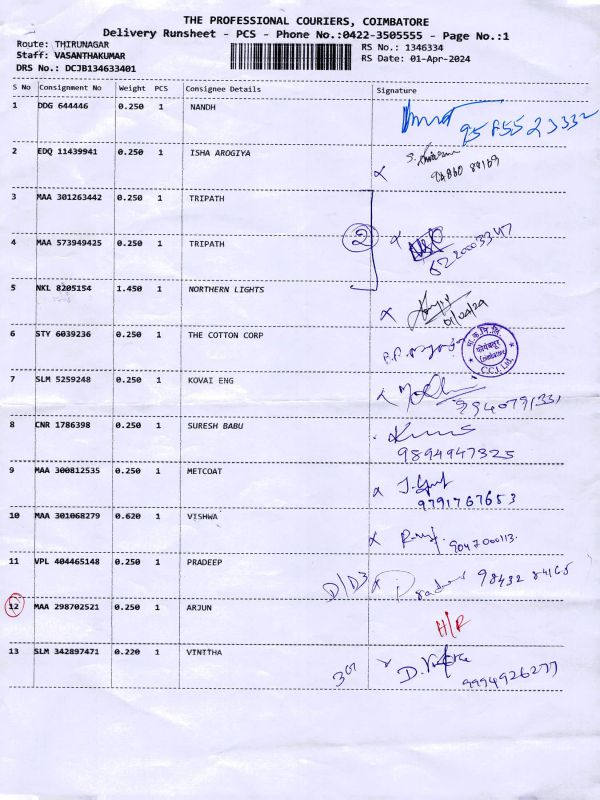 THE PROFESSIONAL COURIERS, COIMBATORE
Delivery Runsheet - PCS - Phone No.:0422-3505555 - Page No.:1
Route: THIRUNAGAR RS No.: 1346334
Staff: VASANTHAKUMAR RS Date: 01-Apr-2024
DRS No.: DCJB134633401
S No Consignment No Weight PCS Consignee Details Signature
1 DDG 644446 0.250 1 NANDH
2 EDQ 11439941 0.250 1 ISHA AROGIYA
3 MAA 301263442 0.250 1 TRIPATH
2
4 MAA 573949425 0.250 1 TRIPATH
5 NKL 8205154 1.450 1 NORTHERN LIGHTS
01/04/24
6 STY 6039236 0.250 1 THE COTTON CORP
C.C.I. Ltd.
7 SLM 5259248 0.250 1 KOVAI ENG
9940791331
8 CNR 1786398 0.250 1 SURESH BABU
9894947325
9 MAA 300812535 0.250 1 METCOAT
9791767653
10 MAA 301068279 0.620 1 VISHWA
9047000113
11 VPL 404465148 0.250 1 PRADEEP
98432 84165
12 MAA 298702521 0.250 1 ARJUN
H/R
13 SLM 342897471 0.220 1 VINITHA
9994926277